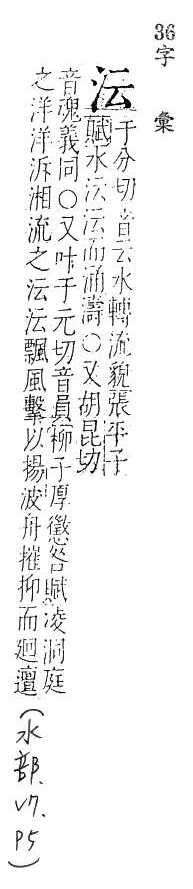 36字 彙
沄
于分切音云水轉流貌張平子
賦水沄沄而涌濤○又胡昆切
音魂義同○又叶于元切音員柳子厚懲咎賦凌洞庭
之洋洋泝湘流之沄沄飄風擊以揚波舟摧抑而廻邅
(水部、V7、P5)